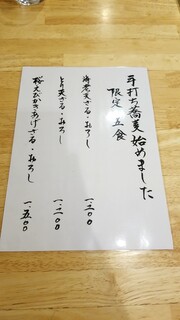 手打ち蕎麦始めました
限定 五食
海老天ざる・おろし 一、三〇〇
とり天ざる・おろし 一、二〇〇
桜えびかきあげざる・おろし 一、五〇〇